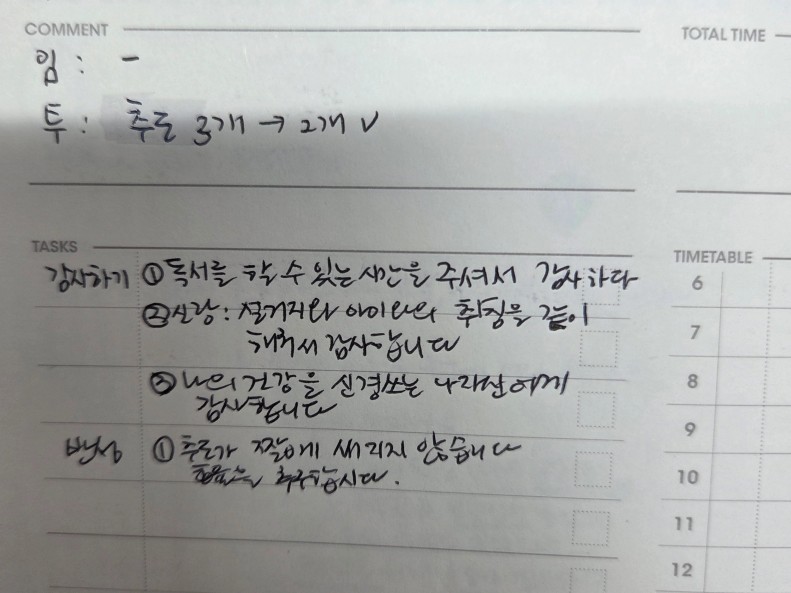 COMMENT
TOTAL TIME
임 : -
투 : 추도 3개 → 2개 v
TASKS
TIMETABLE
감사하기 ① 독서를 할 수 있는 시간을 주셔서 감사하다
② 신랑 : 설거지와 아이와의 취침을 같이
해줘서 감사합니다
③ 나의 건강을 신경쓰는 나자신에게
감사합니다
반성 ① 추도가 짧에 새기지 않습니다
합시다.
6
7
8
9
10
11
12